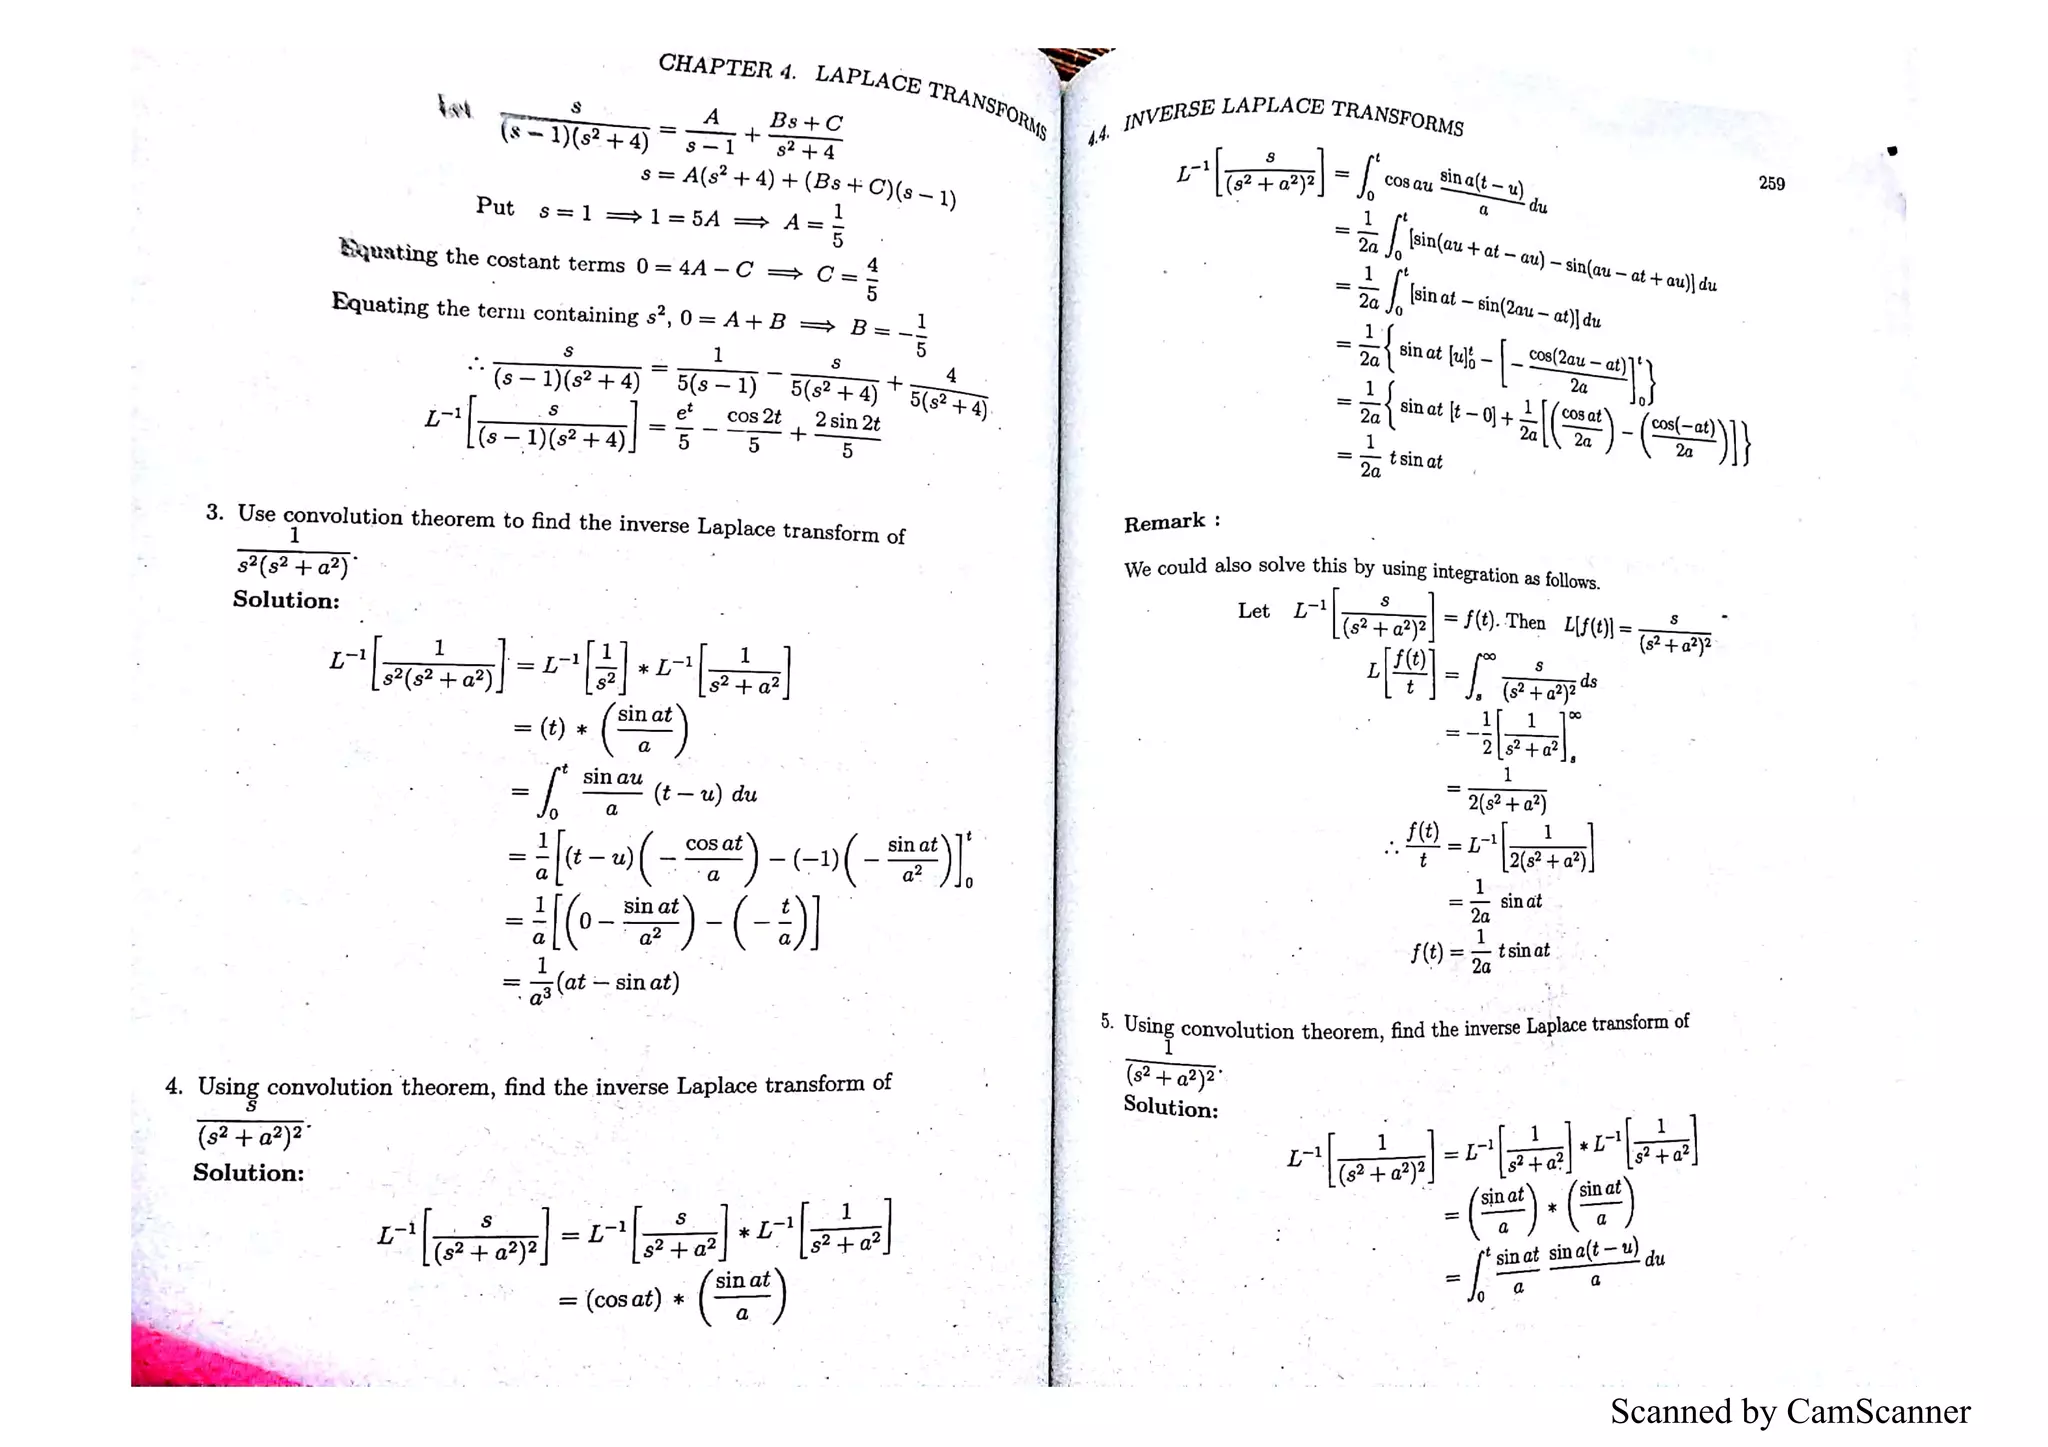 CHAPTER 4. LAPLACE TRANSFORMS
Let s/((s − 1)(s² + 4)) = A/(s − 1) + (Bs + C)/(s² + 4)
s = A(s² + 4) + (Bs + C)(s − 1)
Put s = 1 ⟹ 1 = 5A ⟹ A = 1/5
Equating the costant terms 0 = 4A − C ⟹ C = 4/5
Equating the term containing s², 0 = A + B ⟹ B = −1/5
∴ s/((s − 1)(s² + 4)) = 1/(5(s − 1)) − s/(5(s² + 4)) + 4/(5(s² + 4)).
L⁻¹[s/((s − 1)(s² + 4))] = eᵗ/5 − cos 2t/5 + 2 sin 2t/5
3. Use convolution theorem to find the inverse Laplace transform of
1/(s²(s² + a²)).
Solution:
L⁻¹[1/(s²(s² + a²))] = L⁻¹[1/s²] * L⁻¹[1/(s² + a²)]
= (t) * (sin at/a)
= ∫₀ᵗ (sin au/a) (t − u) du
= 1/a [(t − u)(− cos at/a) − (−1)(− sin at/a²)]₀ᵗ
= 1/a [(0 − sin at/a²) − (− t/a)]
= 1/a³ (at − sin at)
4. Using convolution theorem, find the inverse Laplace transform of
s/(s² + a²)².
Solution:
L⁻¹[s/(s² + a²)²] = L⁻¹[s/(s² + a²)] * L⁻¹[1/(s² + a²)]
= (cos at) * (sin at/a)
4.4. INVERSE LAPLACE TRANSFORMS
259
L⁻¹[s/(s² + a²)²] = ∫₀ᵗ cos au (sin a(t − u)/a) du
= 1/2a ∫₀ᵗ [sin(au + at − au) − sin(au − at + au)] du
= 1/2a ∫₀ᵗ [sin at − sin(2au − at)] du
= 1/2a { sin at [u]₀ᵗ − [− cos(2au − at)/2a]₀ᵗ }
= 1/2a { sin at [t − 0] + 1/2a [(cos at/2a) − (cos(−at)/2a)] }
= 1/2a t sin at
Remark :
We could also solve this by using integration as follows.
Let L⁻¹[s/(s² + a²)²] = f(t). Then L[f(t)] = s/(s² + a²)²
L[f(t)/t] = ∫ₛ^∞ s/(s² + a²)² ds
= −1/2 [1/(s² + a²)]ₛ^∞
= 1/(2(s² + a²))
∴ f(t)/t = L⁻¹[1/(2(s² + a²))]
= 1/2a sin at
f(t) = 1/2a t sin at
5. Using convolution theorem, find the inverse Laplace transform of
1/(s² + a²)².
Solution:
L⁻¹[1/(s² + a²)²] = L⁻¹[1/(s² + a²)] * L⁻¹[1/(s² + a²)]
= (sin at/a) * (sin at/a)
= ∫₀ᵗ (sin at/a) (sin a(t − u)/a) du
Scanned by CamScanner